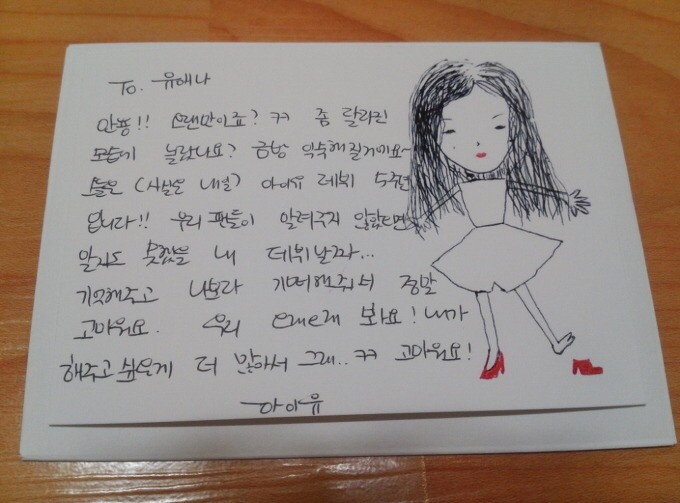 To. 유애나
안뇽!! 오랜만이죠? ㅋㅋ 좀 달라진
모습에 놀랐나요? 금방 익숙해질거예요~
오늘은 (사실은 내일) 아이유 데뷔 5주년
입니다!! 우리 팬들이 알려주지 않았다면
알지도 못했을 내 데뷔날짜...
기억해주고 나보다 기뻐해줘서 정말
고마워요. 우리 오래오래 봐요! 내가
해주고 싶은게 더 많아서 그래.. ㅋㅋ 고마워요!
아이유